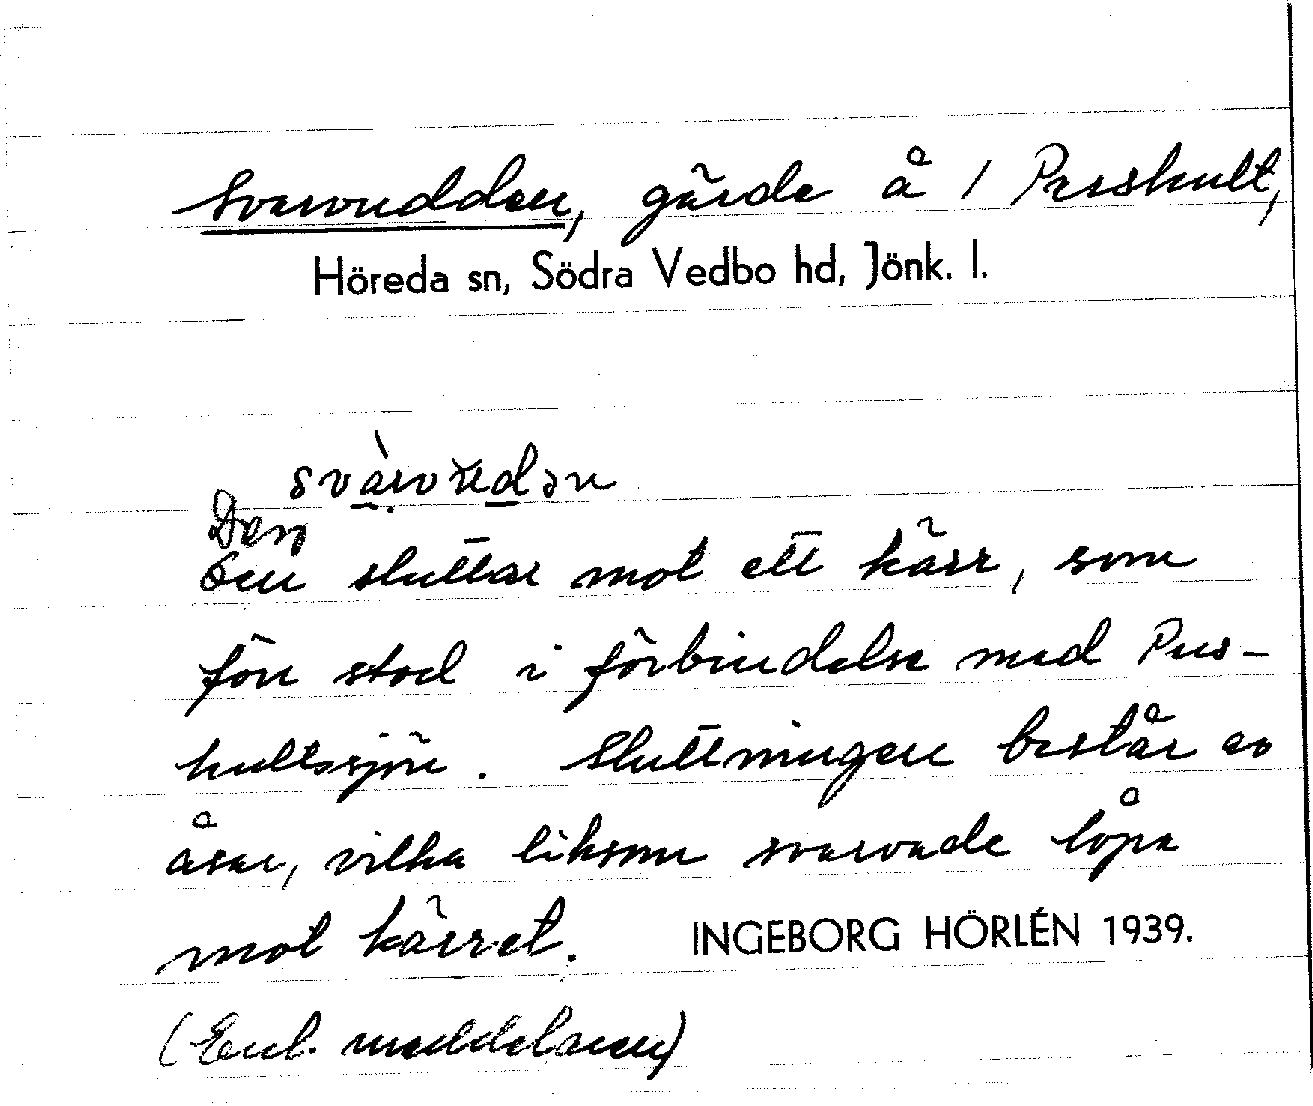 Svarvudden, gärde å 1 Pushult,
Höreda sn, Södra Vedbo hd, Jönk. l.
svàrvùdən
Den
Den sluttar mot ett kärr, som
förr stod i förbindelse med Pus-
hultssjön. Sluttningen består av
åsar, vilka liksom svarvade löpa
mot kärret. INGEBORG HÖRLÉN 1939.
(Enl. meddelaren)